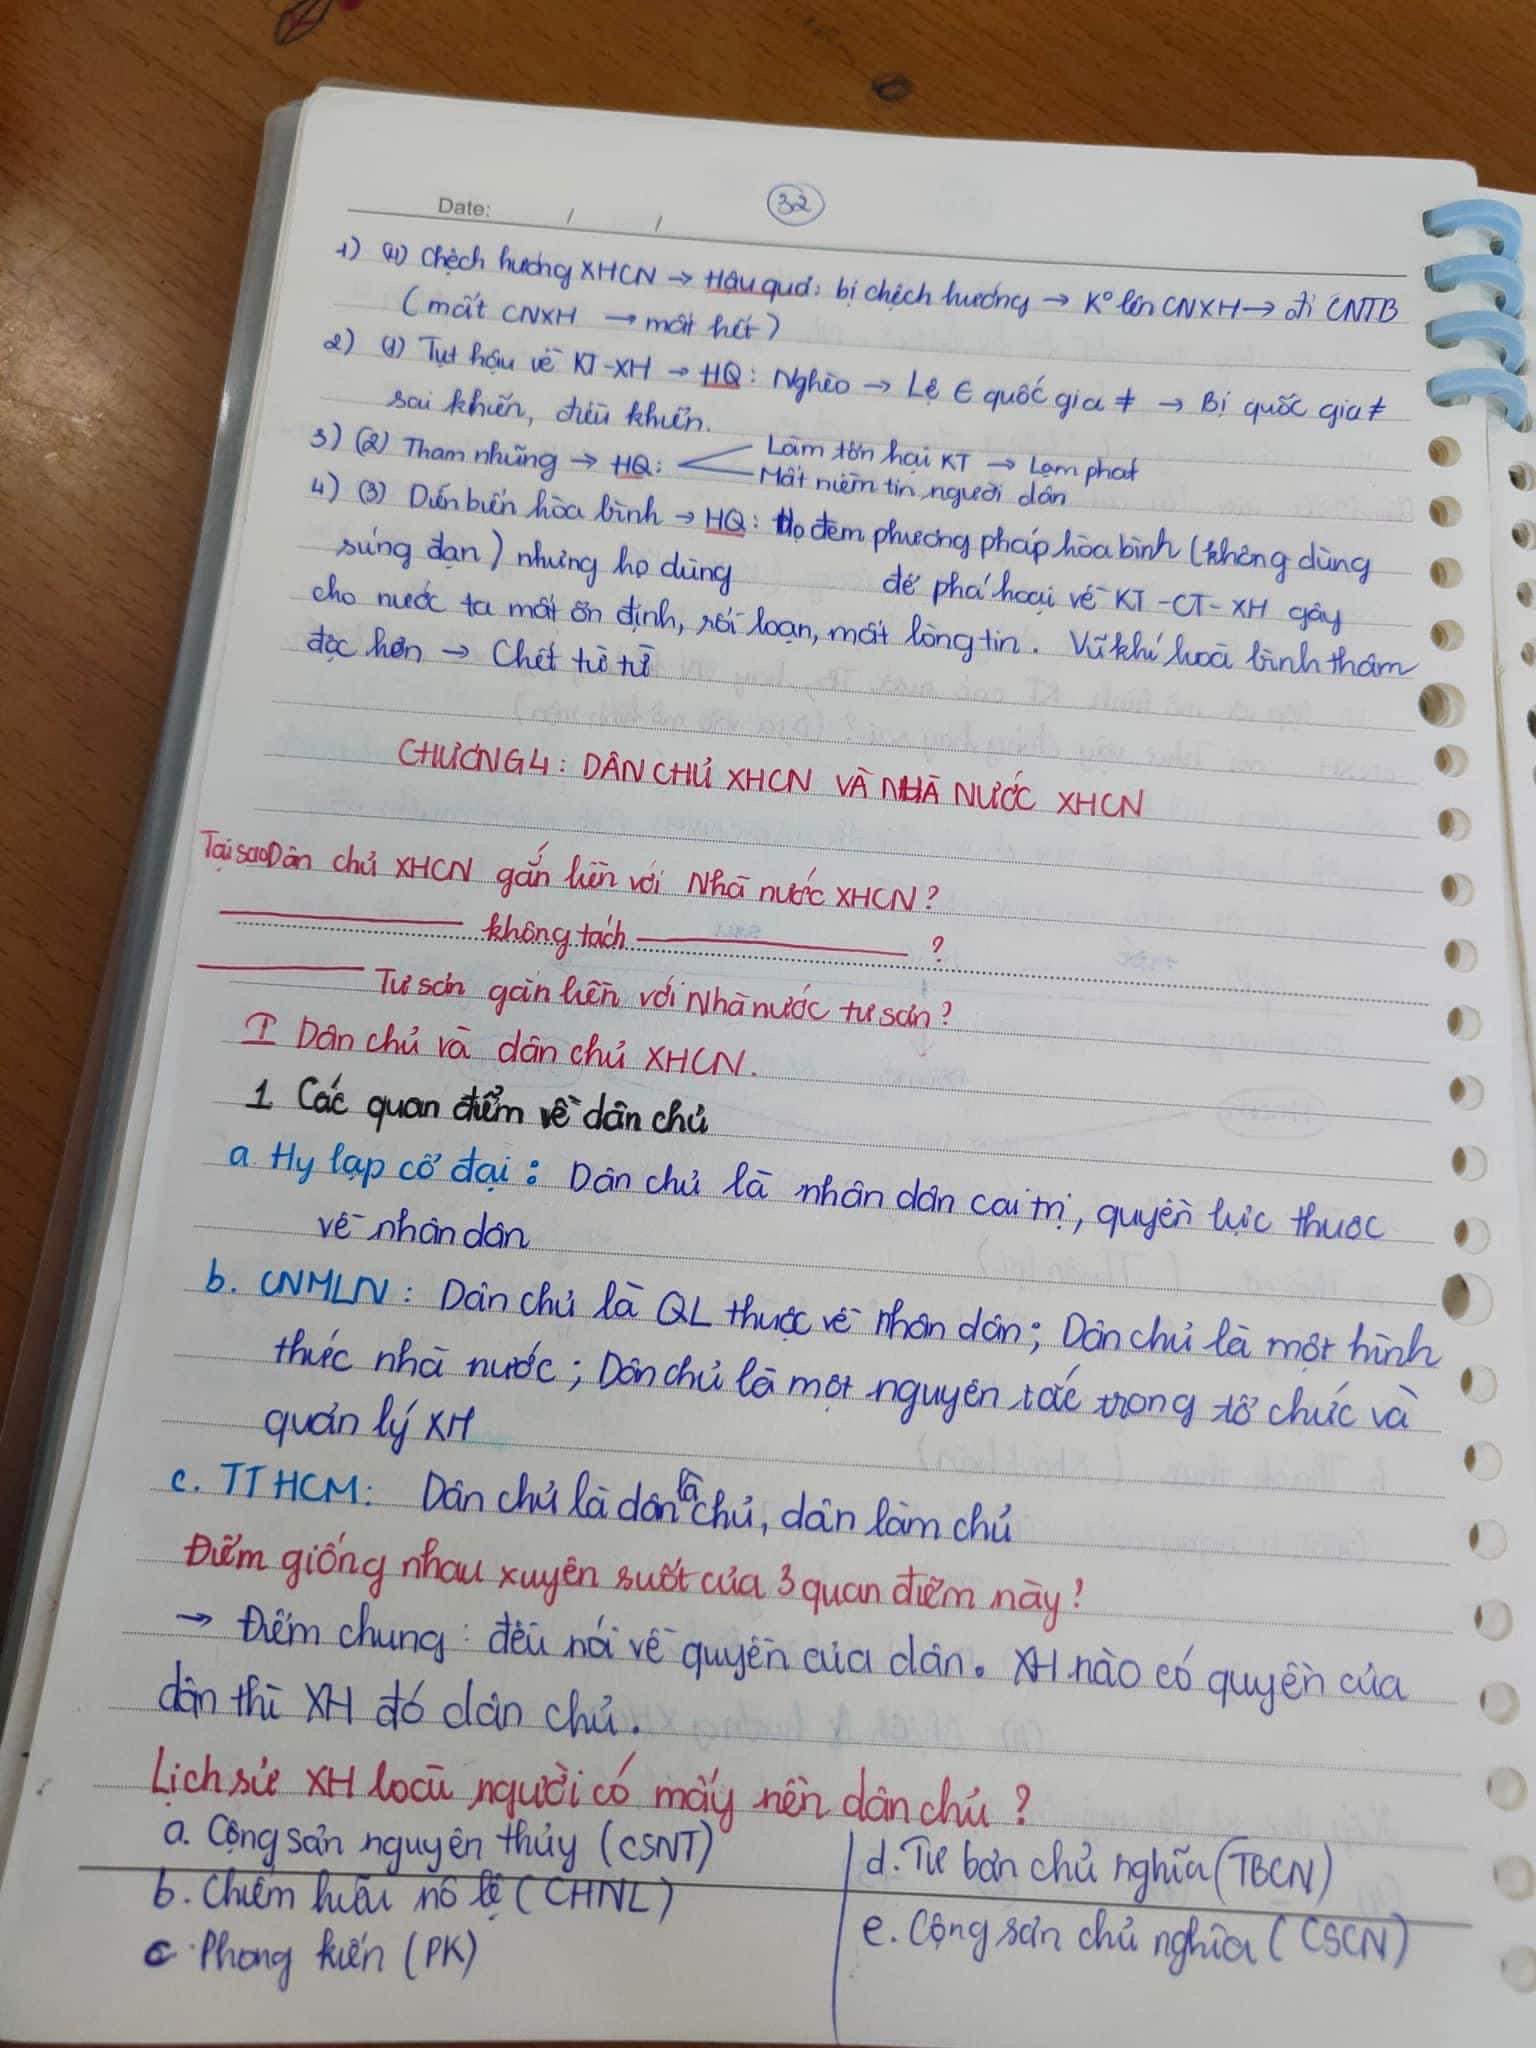 Date: / /
32
1) (4) Chệch hướng XHCN → Hậu quả: bị chệch hướng → K° lên CNXH → đi CNTB
(mất CNXH → mất hết)
2) (1) Tụt hậu về KT-XH → HQ: Nghèo → Lệ ∈ quốc gia ≠ → Bị quốc gia ≠
sai khiến, điều khiển.
3) (2) Tham nhũng → HQ: Làm tổn hại KT → Lạm phát
Mất niềm tin người dân
4) (3) Diễn biến hòa bình → HQ: Họ đem phương pháp hòa bình (không dùng
súng đạn) nhưng họ dùng để phá hoại về KT-CT-XH gây
cho nước ta mất ổn định, rối loạn, mất lòng tin. Vũ khí hoà bình thâm
độc hơn → Chết từ từ
CHƯƠNG 4: DÂN CHỦ XHCN VÀ NHÀ NƯỚC XHCN
Tại sao Dân chủ XHCN gắn liền với Nhà nước XHCN?
không tách ?
Tư sản gắn liền với Nhà nước tư sản?
I Dân chủ và dân chủ XHCN.
1 Các quan điểm về dân chủ
a. Hy lạp cổ đại: Dân chủ là nhân dân cai trị, quyền lực thuộc
về nhân dân
b. CNMLN: Dân chủ là QL thuộc về nhân dân; Dân chủ là một hình
thức nhà nước; Dân chủ là một nguyên tắc trong tổ chức và
quản lý XH
c. TTHCM: Dân chủ là dân là chủ, dân làm chủ
Điểm giống nhau xuyên suốt của 3 quan điểm này?
→ Điểm chung: đều nói về quyền của dân. XH nào có quyền của
dân thì XH đó dân chủ.
Lịch sử XH loài người có mấy nền dân chủ?
a. Cộng sản nguyên thủy (CSNT)
b. Chiếm hữu nô lệ (CHNL)
c. Phong kiến (PK)
d. Tư bản chủ nghĩa (TBCN)
e. Cộng sản chủ nghĩa (CSCN)